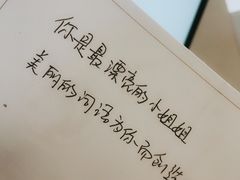 你是最漂亮的小姐姐
美丽的词语为你而创造